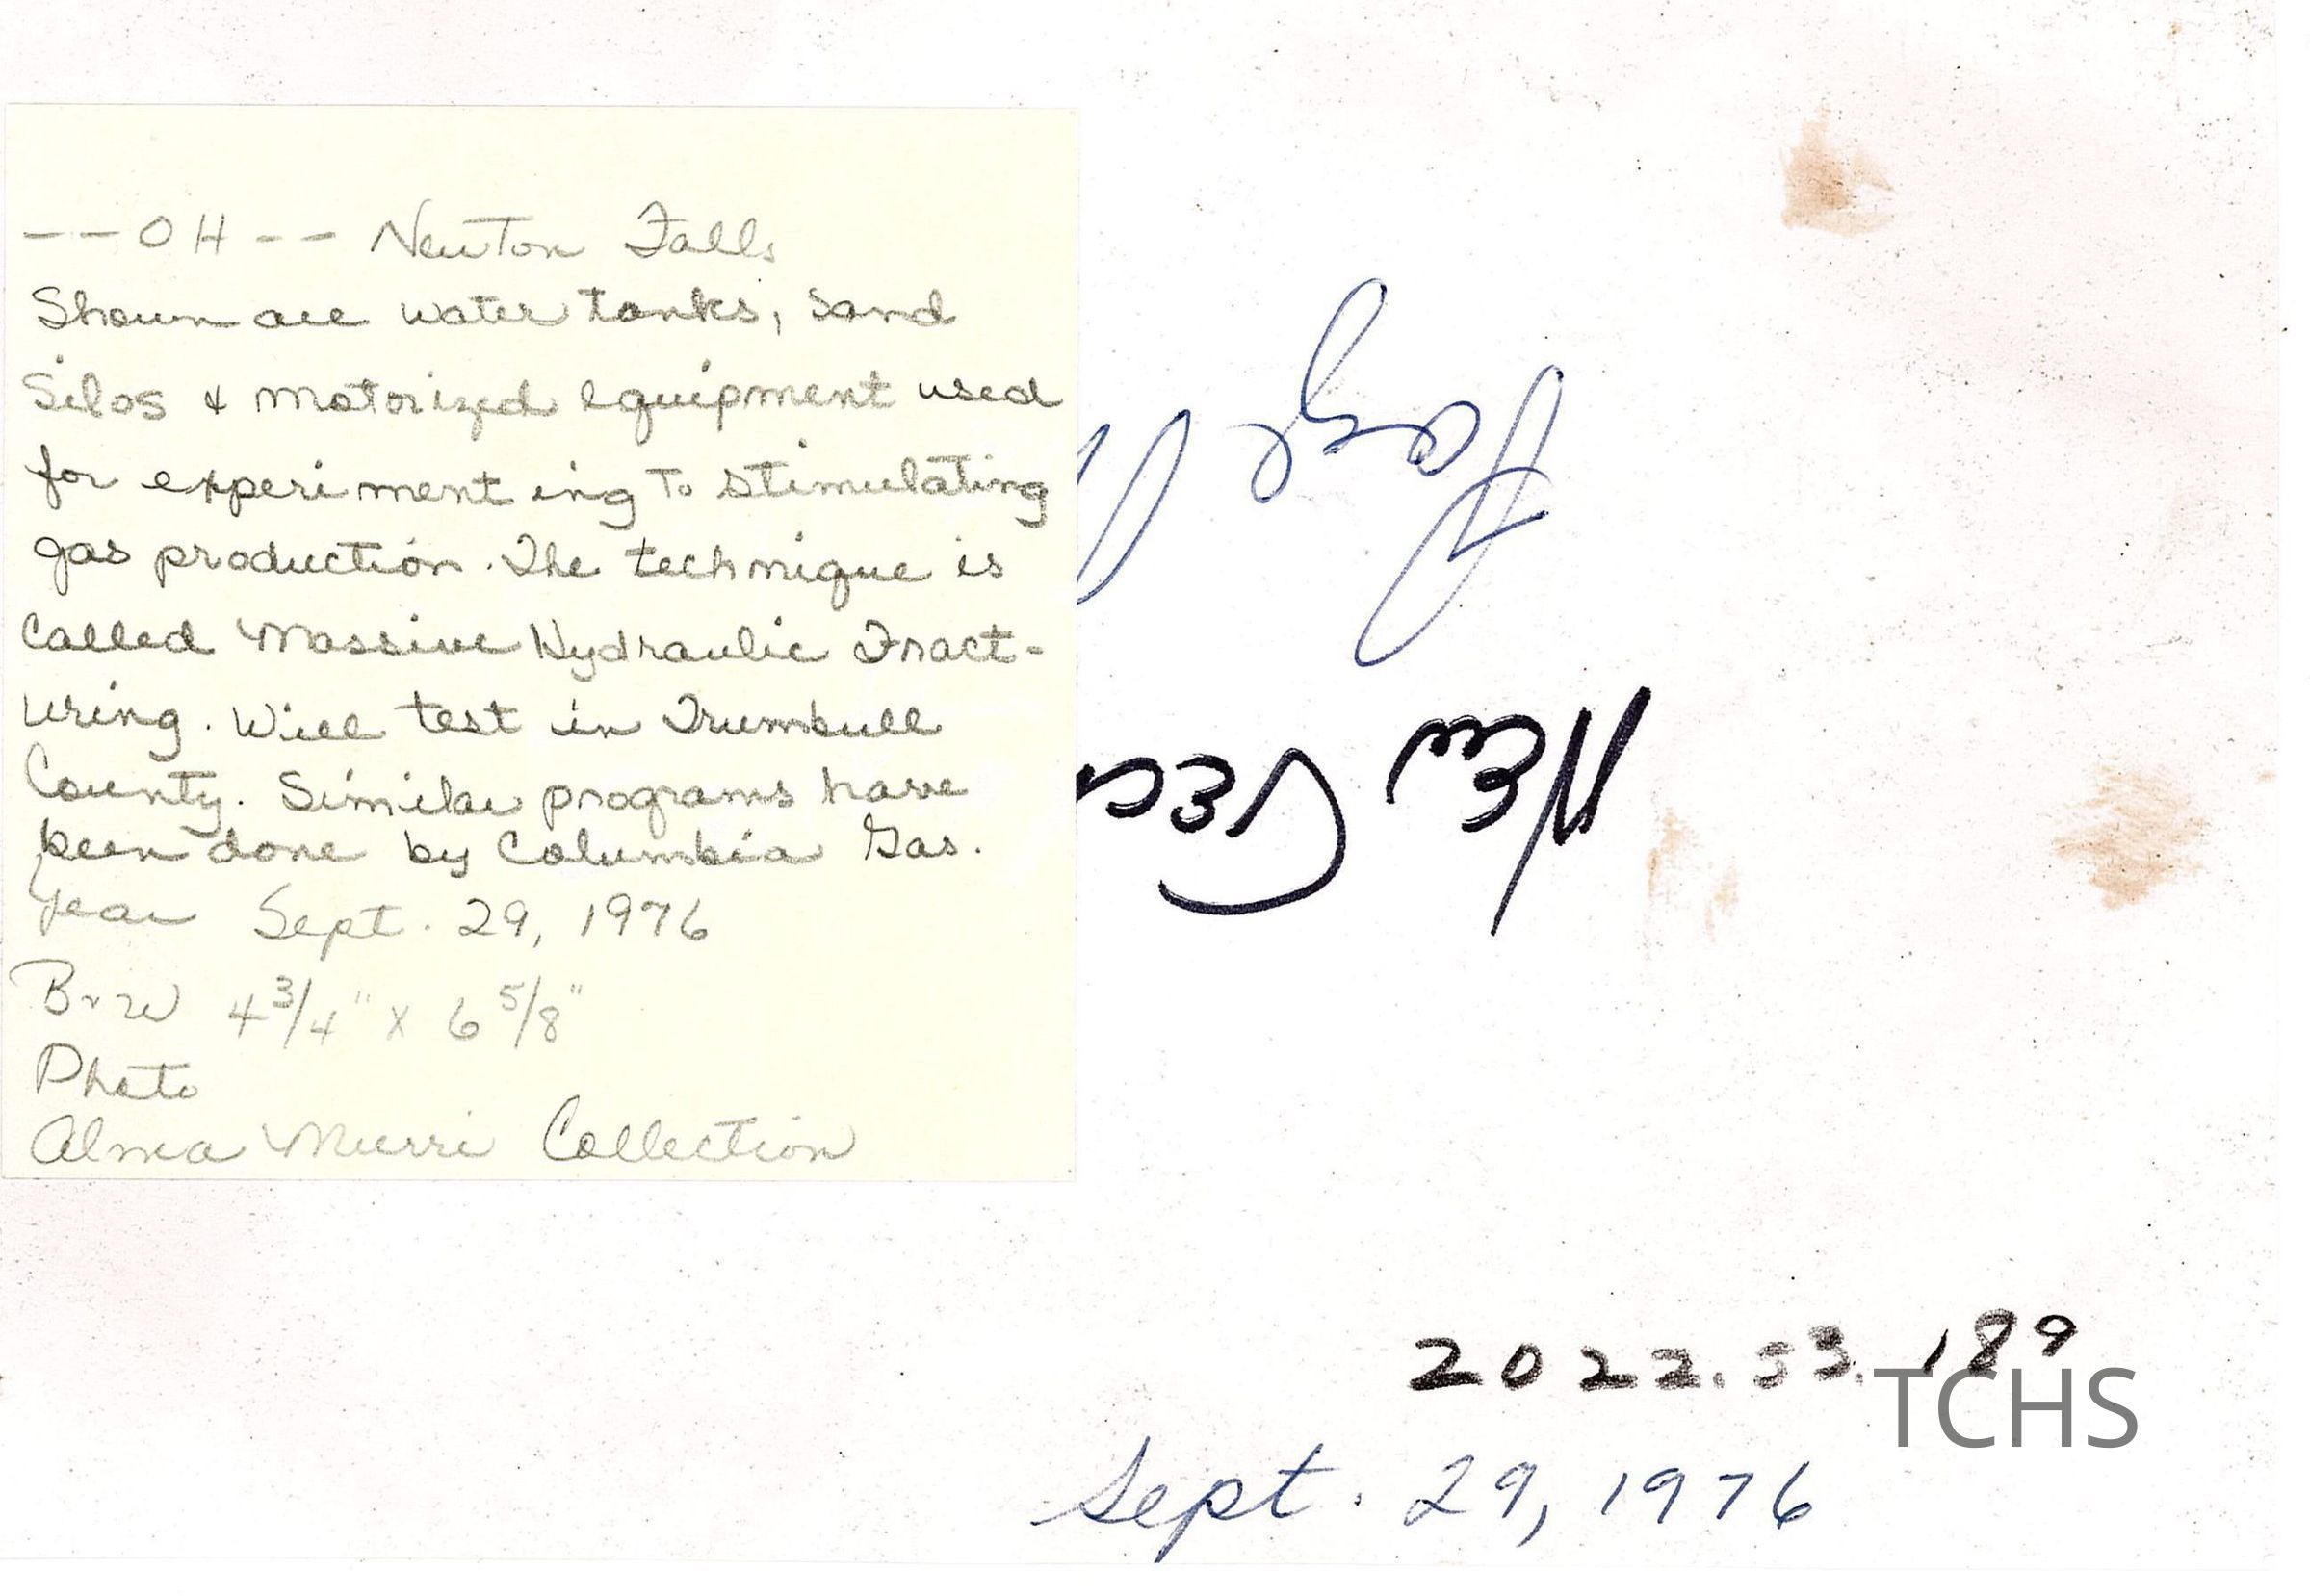 --OH-- Newton Falls
Shown are water tanks, sand
silos & motorized equipment used
for experimenting To stimulating
gas production. The technique is
Called Massive Hydraulic Fract-
uring. Will test in Trumbull
County. Similar programs have
been done by Columbia Gas.
Year Sept. 29, 1976
B & W 4 3/4" x 6 5/8"
Photo
Alma Murri Collection
New
2022.53.189
TCHS
Sept. 29, 1976